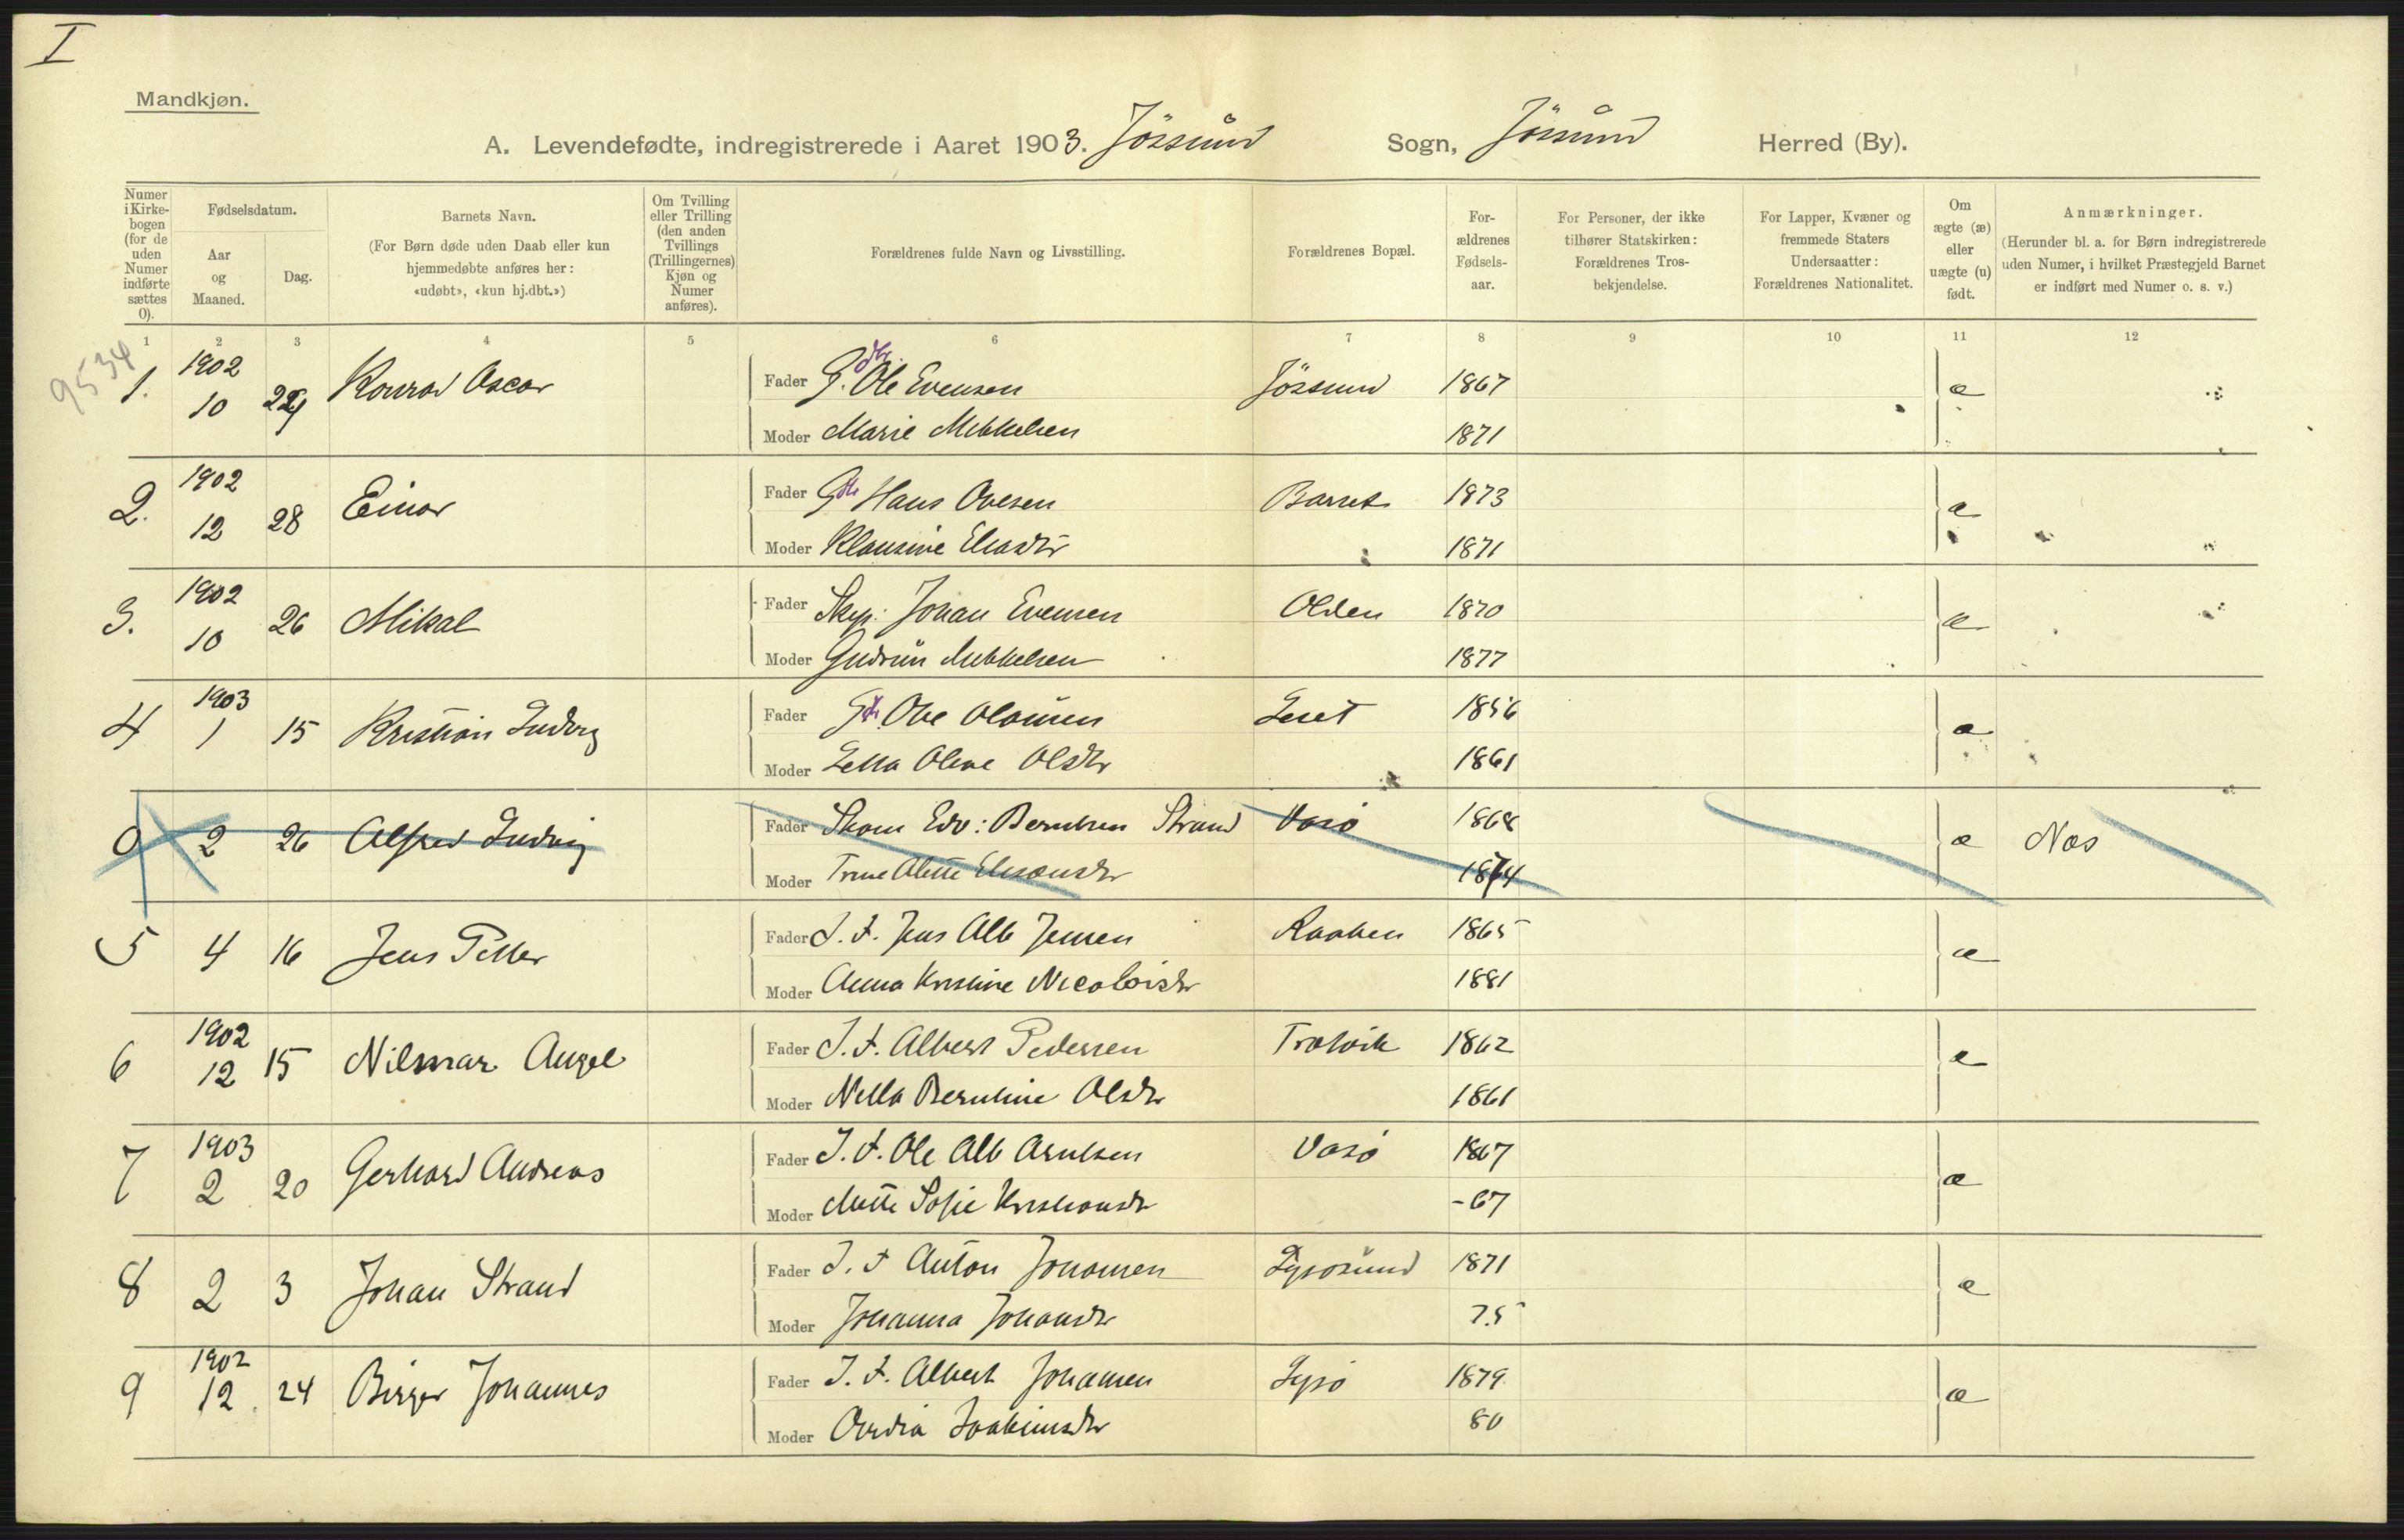 I
Mandkjøn.
A. Levendefødte, indregistrerede i Aaret 1903. Jössund Sogn, Jössund Herred (By).
Numer i Kirkebogen (for de uden Numer indførte sættes 0).
Fødselsdatum.
Aar og Maaned.
Dag.
Barnets Navn.
(For Børn døde uden Daab eller kun hjemmedøbte anføres her: «udøbt», «kun hj.dbt.»)
Om Tvilling eller Trilling (den anden Tvillings (Trillingernes) Kjøn og Numer anføres).
Forældrenes fulde Navn og Livsstilling.
Forældrenes Bopæl.
Forældrenes Fødselsaar.
For Personer, der ikke tilhører Statskirken: Forældrenes Trosbekjendelse.
For Lapper, Kvæner og fremmede Staters Undersaatter: Forældrenes Nationalitet.
Om ægte (æ) eller uægte (u) født.
Anmærkninger.
(Herunder bl. a. for Børn indregistrerede uden Numer, i hvilket Præstegjeld Barnet er indført med Numer o. s. v.)
1 2 3 4 5 6 7 8 9 10 11 12
9534
1. 1902 10 Konrad Oscar Fader G. Ole Evensen Jössund 1867 æ
Moder Marie Mikkelsen 1871
2. 1902 12 28 Einar Fader Hans Ovesen Barset 1873 æ
Moder Klausine Eliasdtr 1871
3. 1902 10 26 Mikal Fader Skyp. Johan Evensen Olden 1870 æ
Moder Gudrun Mikkelsen 1877
4 1903 1 15 Kristian Ludvig Fader Ove Olausen Leset 1856 æ
Moder Olave Olsdtr 1861
0 2 26 Alfred Ludvig Fader Skom Edv: Berntsen Strand Vasø 1868 æ Næs
Moder Trine Alette
5 4 16 Jens Petter Fader J. F. Jens Alb Jensen Raaken 1865 æ
Moder Anna Kristine Nicolaisdtr 1881
6 1902 12 15 Hilmar Angel Fader J. F. Albert Pedersen Tralvik 1862 æ
Moder Berntine Olsdtr 1861
7 1903 2 20 Gerhard Andreas Fader J. F. Ole Alb Arntsen Vasø 1867 æ
Moder Mette Sofie Kristiansdtr -67
8 2 3 Johan Strand Fader J. F Anton Johansen Lysøsund 1871 æ
Moder Johanna Johansdtr 75
9 1902 12 24 Birger Johannes Fader J. F. Albert Johansen Lysø 1879 æ
Moder Ovedia Joakimsdtr 80